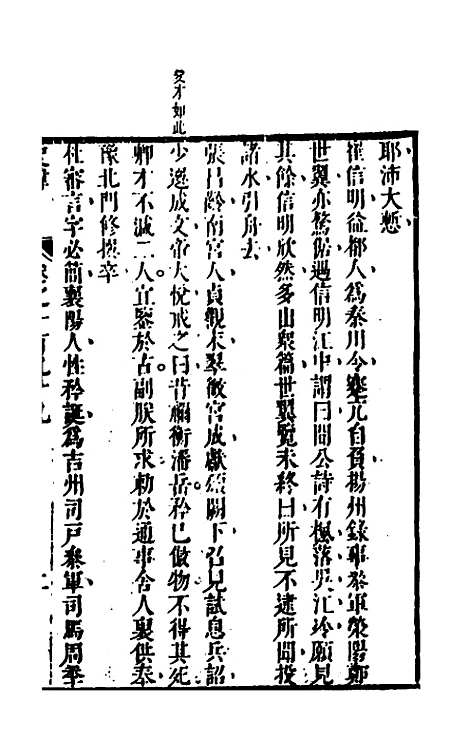 耶沛大慙
崔信明益都人爲秦川令蹇亢自負揚州錄事參軍滎陽鄭
世翼亦驁倨遇信明江中謂曰聞公詩有楓落吳江冷願見
其餘信明欣然多出衆篇世翼覽未終曰所見不逮所聞投
諸水引舟去
張昌齡南宮人貞觀末翠微宮成獻頌闕下召見試息兵詔
少選成文帝大悅戒之曰昔禰衡潘岳矜己傲物不得其死
卿才不減二人宜鑒於古副朕所求勅於通事舍人裏供奉
愛才如此
豫北門修撰卒
杜審言字必簡襄陽人性矜誕爲吉州司戸參軍司馬周季
卷之一百九十九